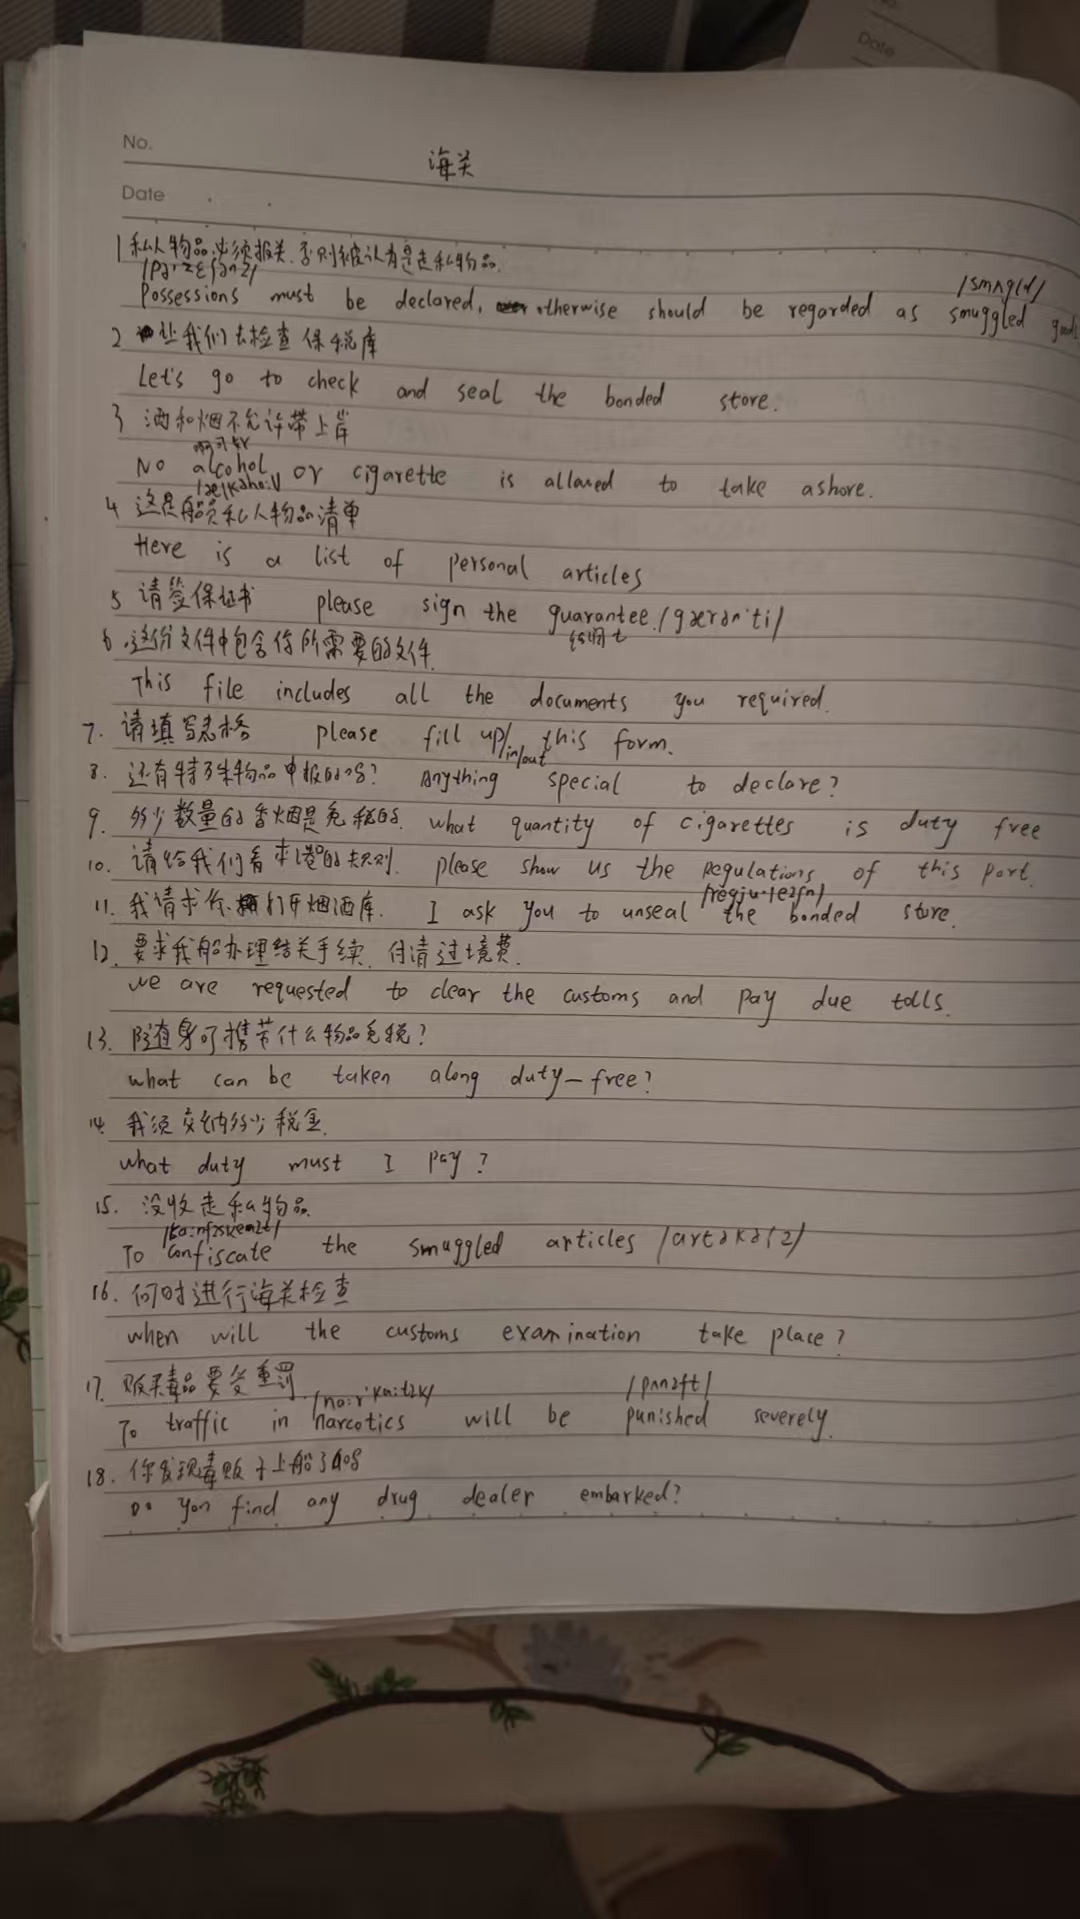 Date
No.
海关
Date
1 私人物品必须报关.否则被认为是走私物品.
Possessions must be declared, otherwise should be regarded as smuggled goods
2 让我们去检查保税库
Let's go to check and seal the bonded store.
3 酒和烟不允许带上岸
No alcohol or cigarette is allowed to take ashore.
4 这是船员私人物品清单
Here is a list of personal articles
5 请签保证书 please sign the guarantee.
6.这份文件中包含你所需要的文件.
This file includes all the documents you required.
7. 请填写表格 please fill up/in/out this form.
8. 还有特殊物品申报的吗? Anything special to declare?
9. 多少数量的香烟是免税的. what quantity of cigarettes is duty free
10. 请给我们看本港的规则. please show us the regulations of this port.
11. 我请求你打开烟酒库. I ask you to unseal the bonded store.
12. 要求我船办理结关手续.付清过境费.
we are requested to clear the customs and pay due tolls.
13. 随身可携带什么物品免税?
what can be taken along duty-free?
14. 我须交纳多少税金.
what duty must I pay?
15. 没收走私物品.
To confiscate the smuggled articles
16. 何时进行海关检查
when will the customs examination take place?
17. 贩卖毒品要受重罚.
To traffic in narcotics will be punished severely.
18. 你发现毒贩子上船了吗
Do you find any drug dealer embarked?